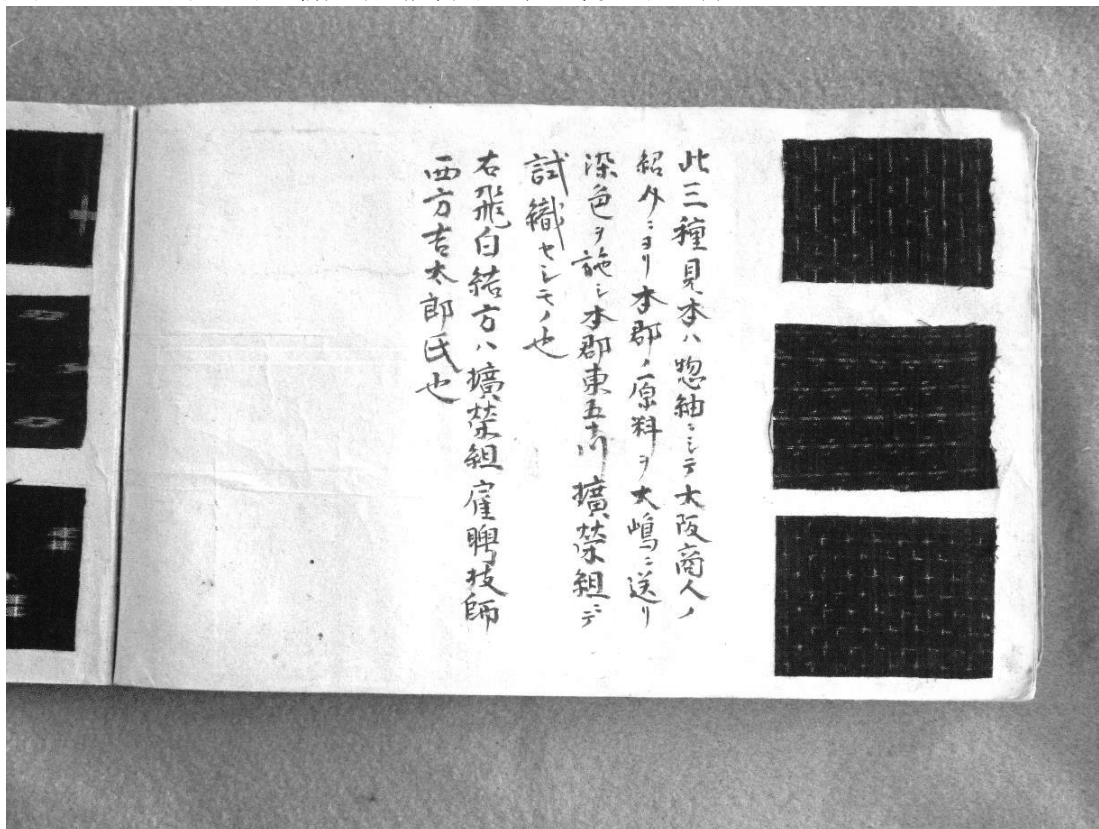 此三種見本ハ惣紬ニシテ大阪商人ノ
紹介ニヨリ本郡ノ原料ヲ大嶋ニ送リ
染色ヲ施シ本郡東五 擴榮組ニテ
試織セシモノ也
右飛白結方ハ擴榮組雇聘技師
西方吉太郎氏也